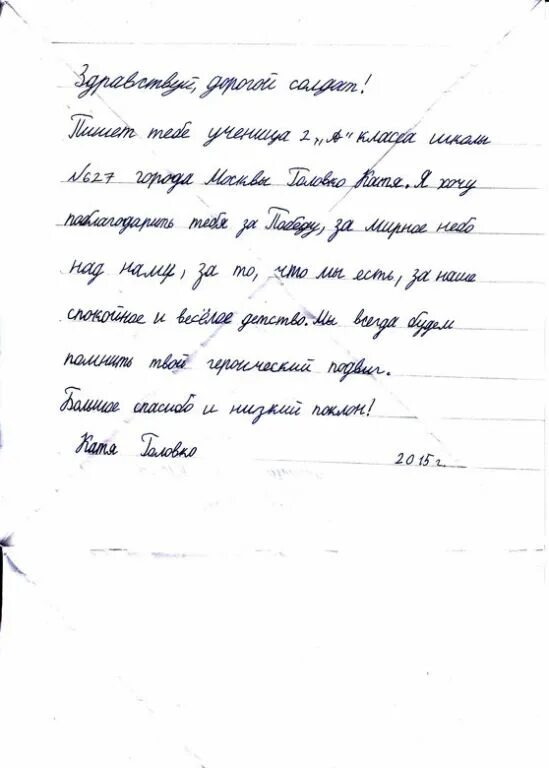 Здравствуй, дорогой солдат!
Пишет тебе ученица 2 „А" класса школы
№627 города Москвы Головко Катя. Я хочу
поблагодарить тебя за Победу, за мирное небо
над нами, за то, что мы есть, за наше
спокойное и весёлое детство. Мы всегда будем
помнить твой героический подвиг.
Большое спасибо и низкий поклон!
Катя Головко 2015 г.